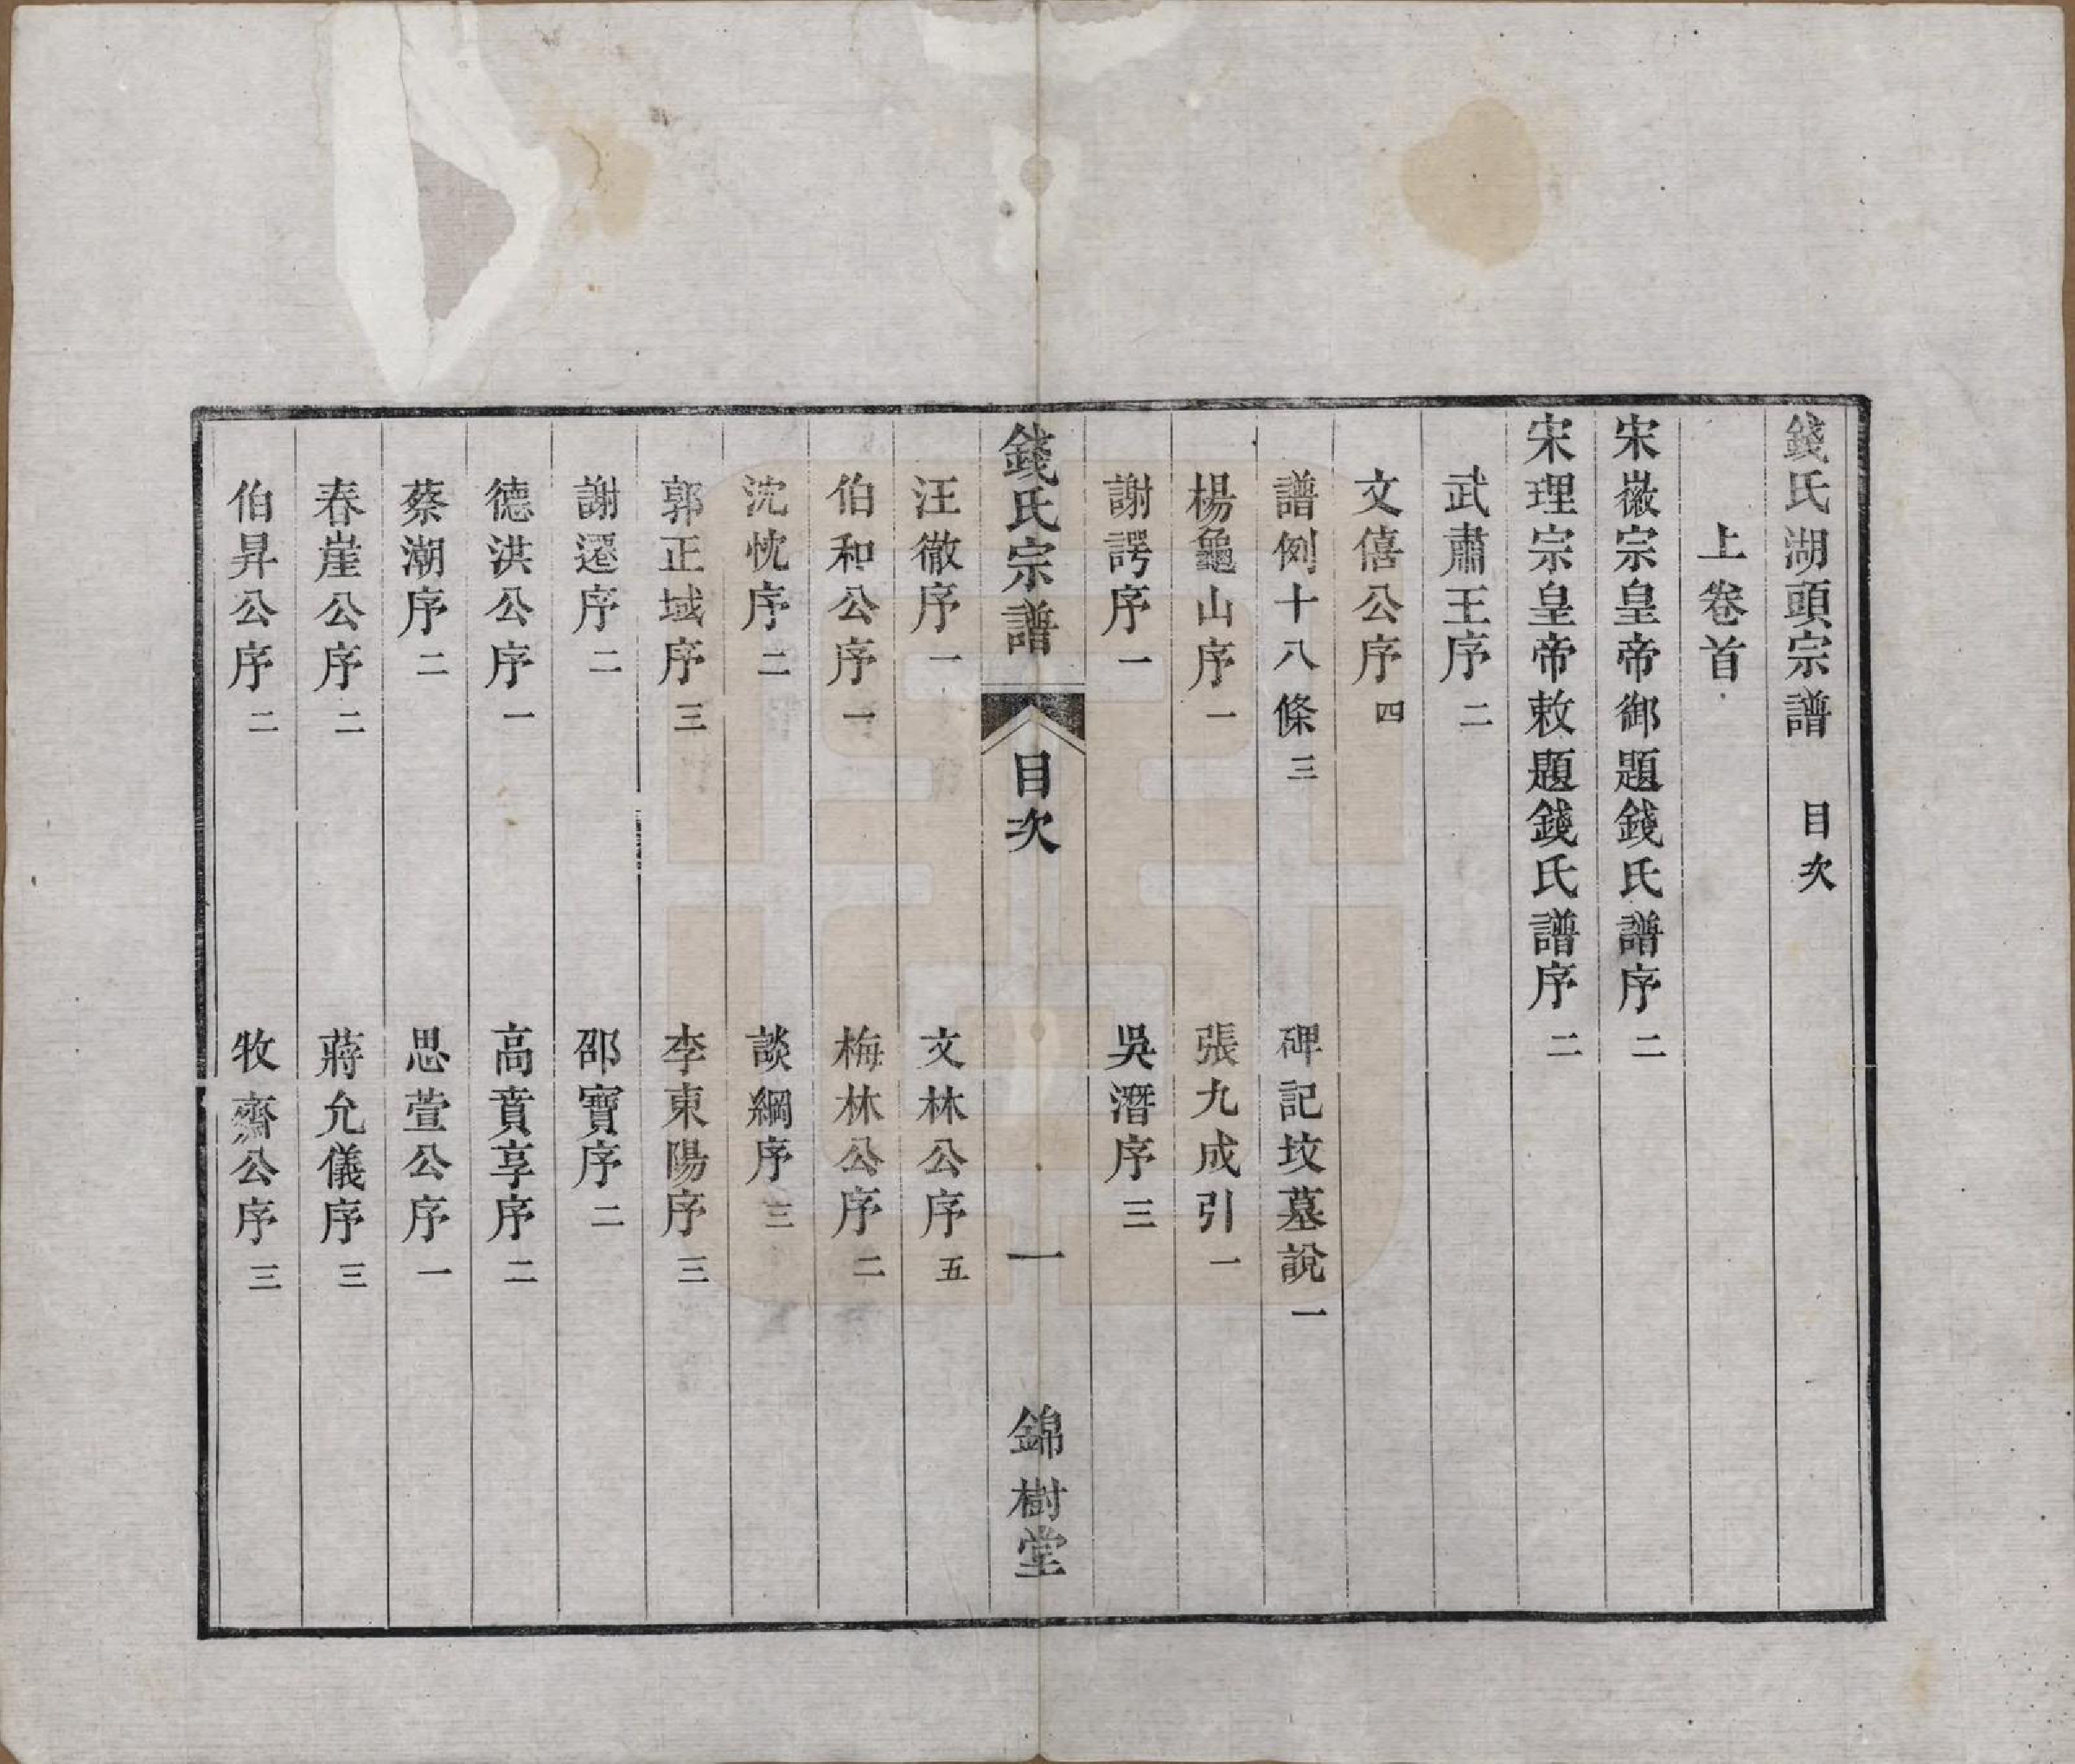 錢氏湖頭宗譜　目次
上卷首
宋徽宗皇帝御題錢氏譜序二
宋理宗皇帝敕題錢氏譜序二
武肅王序二
文僖公序四
譜例十八條三　碑記坟墓說一
楊龜山序一　張九成引一
謝諤序一　吳潛序三
錢氏宗譜　目次　一　錦樹堂
汪徹序一　文林公序五
伯和公序一　梅林公序二
沈忱序二　談綱序三
郭正域序三　李東陽序三
謝遷序二　邵寶序二
德洪公序一　高賁亨序二
蔡潮序二　思萱公序一
春崖公序二　蔣允儀序三
伯昇公序二　牧齋公序三